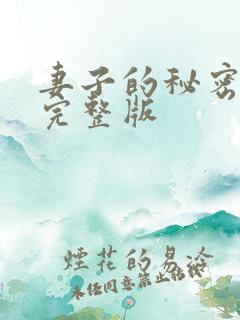 妻子的秘密
完整版
煙花的易冷
未经同意禁止转载